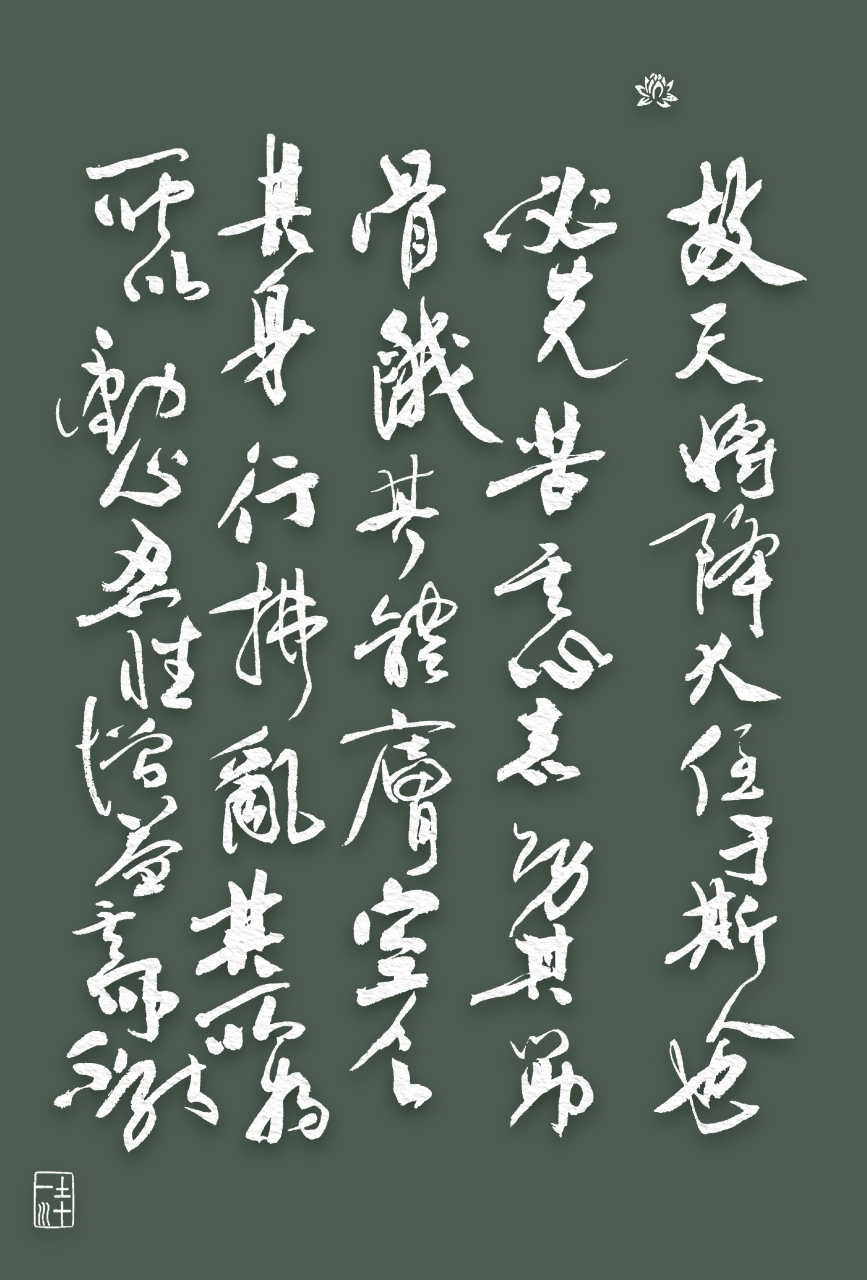 故天将降大任于斯人也
必先苦其心志劳其筋
骨餓其體膚空乏
其身行拂亂其所為
所以動心忍性增益其所不能